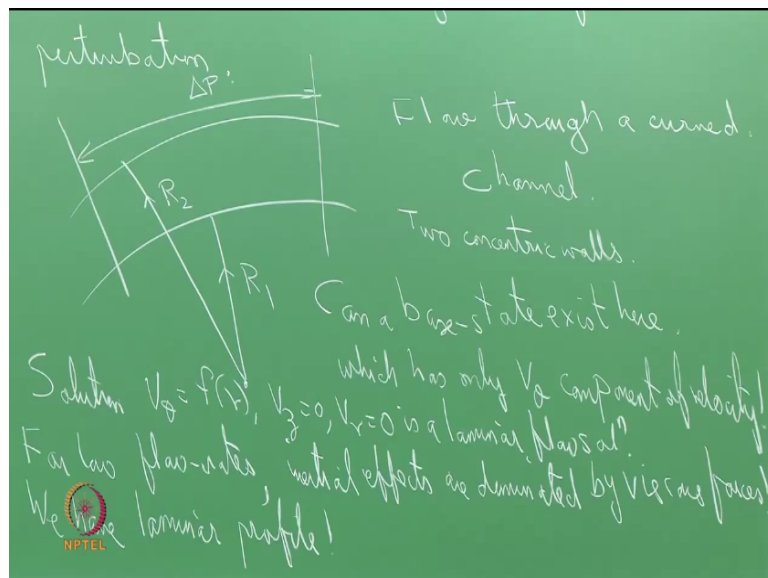 perturbation
ΔP
Flow through a curved
channel.
R2
Two concentric walls.
R1
Can a base-state exist here
which has only Vθ component of velocity!
Solution Vθ = f(r), Vz=0, Vr=0 is a laminar
For low flow-rates, inertial effects are dominated by viscous forces!
We have laminar profile!
NPTEL